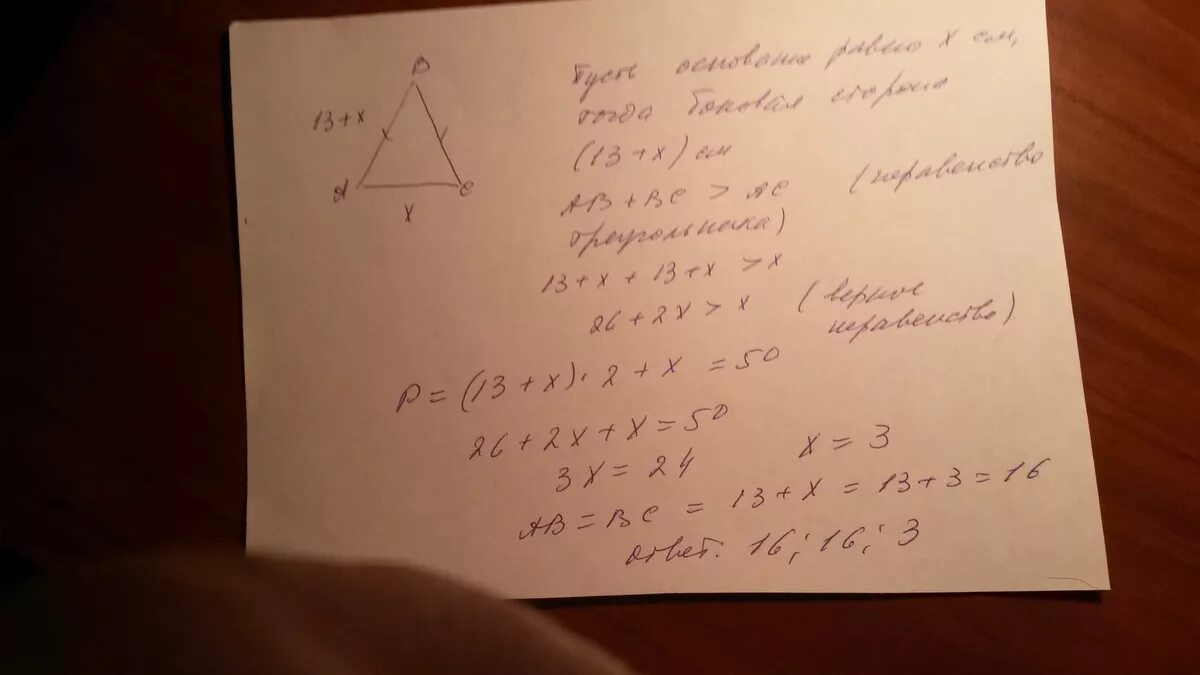 B
13+x
A
C
x
Пусть основание равно x см,
тогда боковая сторона
(13+x) см
AB + BC > AC (неравенство
треугольника)
13+x + 13+x > x
26 + 2x > x (верное
неравенство)
P = (13+x)·2 + x = 50
26 + 2x + x = 50
3x = 24 x = 3
AB = BC = 13+x = 13+3 = 16
ответ: 16; 16; 3